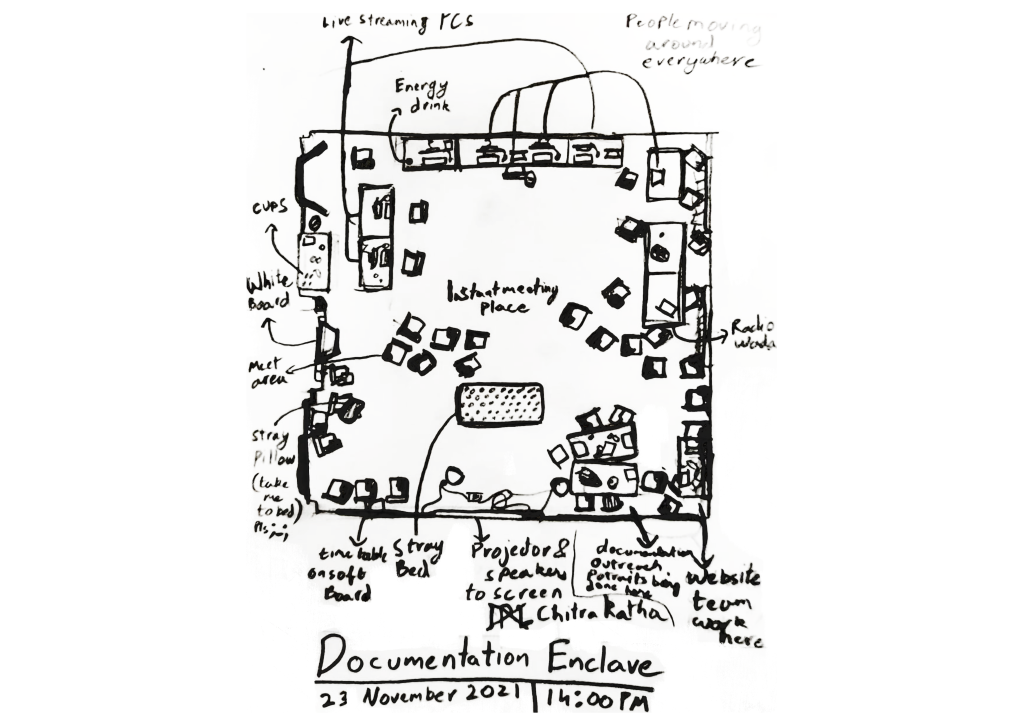 Live Streaming PCS
People moving
around
everywhere
Energy
drink
CUPS
White
Board
Instant meeting
place
Meet
area
Stray
Pillow
(take
me
to bed)
Pls ;-;
time table
on soft
Board
Stray
Bed
Projector &
speaker
to screen
documentation
Outreach
Potraits being
done here
Chitra Katha
Website
team
work
here
Documentation Enclave
23 November 2021 | 14:00 PM